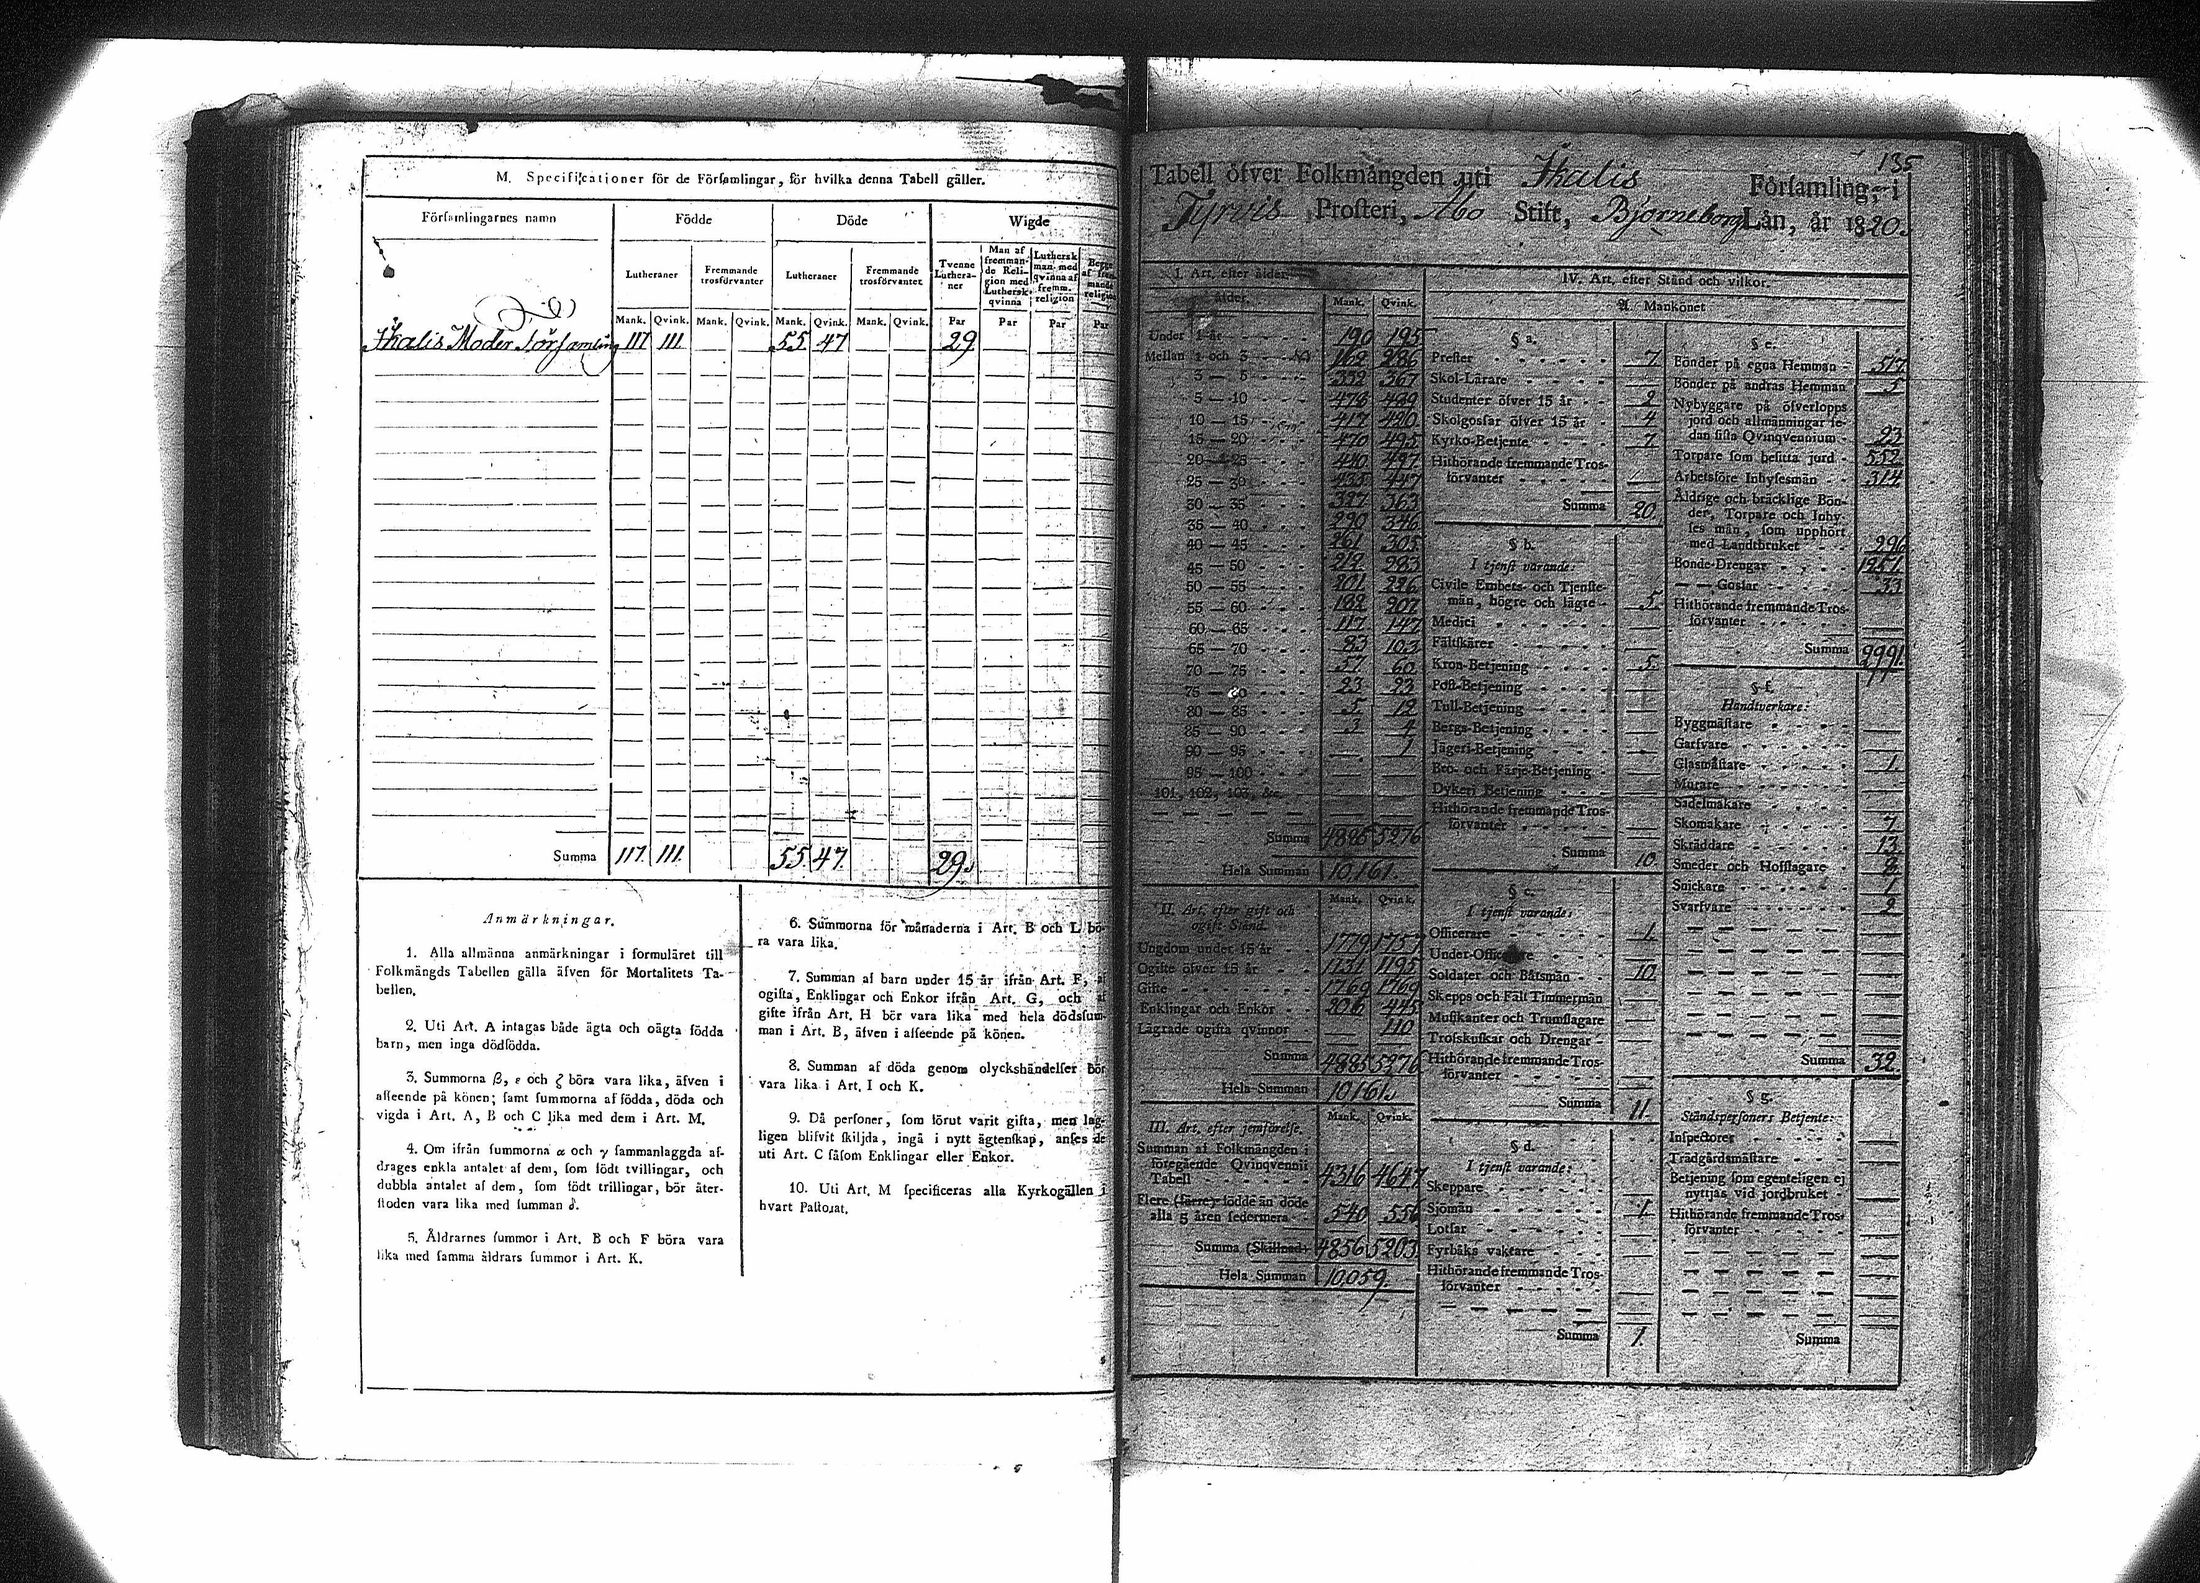 M. Specificationer för de Församlingar, för hvilka denna Tabell gäller.
Församlingarnes namn
Födde
Döde
Wigde
Lutheraner
Fremmande trosförvanter
Lutheraner
Fremmande trosförvanter
Tvenne Lutheraner
Man af fremmande Religion med Luthersk qvinna
Luthersk man med qvinna af fremm. religion
Begge af fremmande religion
Mank. Qvink. Mank. Qvink. Mank. Qvink. Mank. Qvink. Par Par Par Par
Ikalis Moder Församling 117 111 55 47 29
Summa 117. 111. 55 47. 29.
Anmärkningar.
1. Alla allmänna anmärkningar i formuläret till
Folkmängds Tabellen gälla äfven för Mortalitets Ta-
bellen.
2. Uti Art. A intagas både ägta och oägta födda
barn, men inga dödfödda.
3. Summorna β, ε och ζ böra vara lika, äfven i
afseende på könen; samt summorna af födda, döda och
vigda i Art. A, B och C lika med dem i Art. M.
4. Om ifrån summorna α och γ sammanlaggda af-
drages enkla antalet af dem, som födt tvillingar, och
dubbla antalet af dem, som födt trillingar, bör åter-
stoden vara lika med summan δ.
5. Åldrarnes summor i Art. B och F böra vara
lika med samma åldrars summor i Art. K.
6. Summorna för månaderna i Art. B och L bö-
ra vara lika.
7. Summan af barn under 15 år ifrån Art. F, af
ogifta, Enklingar och Enkor ifrån Art. G, och af
gifte ifrån Art. H bör vara lika med hela dödssum-
man i Art. B, äfven i afseende på könen.
8. Summan af döda genom olyckshändelser bör
vara lika i Art. I och K.
9. Då personer, som förut varit gifta, men lag-
ligen blifvit skiljda, ingå i nytt ägtenskap, anses de
uti Art. C såsom Enklingar eller Enkor.
10. Uti Art. M specificeras alla Kyrkogällen i
hvart Pastorat.
135
Tabell öfver Folkmängden uti Ikalis Församling, i
Tyrvis Prosteri, Åbo Stift, Björneborgs Län, år 1820.
I. Art. efter ålder.
ålder. Mank. Qvink.
Under 1 år 190 195
Mellan 1 och 3 168 286
3 — 5 332 367
5 — 10 478 489
10 — 15 417 420
15 — 20 470 495
20 — 25 440 497
25 — 30 435 447
30 — 35 327 363
35 — 40 290 346
40 — 45 261 305
45 — 50 212 283
50 — 55 201 226
55 — 60 182 207
60 — 65 117 147
65 — 70 83 103
70 — 75 57 60
75 — 80 23 23
80 — 85 5 12
85 — 90 3 4
90 — 95 1
95 — 100
101, 102, 103, &c.
Summa 4885 5276
Hela Summan 10,161.
II. Art. efter gift och
ogift Stånd.
Mank. Qvink.
Ungdom under 15 år 1779 1757
Ogifte öfver 15 år 1131 1195
Gifte 1769 1769
Enklingar och Enkor 206 445
Lägrade ogifta qvinnor 110
Summa 4885 5276
Hela Summan 10161.
III. Art. efter jemförelse.
Mank. Qvink.
Summan af Folkmängden i
föregående Qvinqvennii
Tabell 4316 4647
Flere (färre) födde än döde
alla 5 åren sedermera 540 556
Summa (Skillnad) 4856 5203.
Hela Summan 10,059.
IV. Art. efter Stånd och vilkor.
A. Mankönet
§ a.
Prester 7.
Skol-Lärare
Studenter öfver 15 år 2
Skolgossar öfver 15 år 4
Kyrko-Betjente 7
Hithörande fremmande Tros-
förvanter
Summa 20.
§ b.
I tjenst varande:
Civile Embets- och Tjenste-
män, högre och lägre 5.
Medici
Fältskärer
Kron-Betjening 5.
Post-Betjening
Tull-Betjening
Bergs-Betjening
Jägeri-Betjening
Bro- och Färje-Betjening
Dykeri Betjening
Hithörande fremmande Tros-
förvanter
Summa 10.
§ c.
I tjenst varande:
Officerare 1.
Under-Officerare
Soldater och Båtsmän 10.
Skepps och Fält Timmermän
Musikanter och Trumslagare
Trosskuskar och Drengar
Hithörande fremmande Tros-
förvanter
Summa 11.
§ d.
I tjenst varande:
Skeppare
Sjömän 1.
Lotsar
Fyrbåks vaktare
Hithörande fremmande Tros-
förvanter
Summa 1.
§ e.
Bönder på egna Hemman 517.
Bönder på andras Hemman 5
Nybyggare på öfverlopps
jord och allmänningar se-
dan sista Qvinqvennium 23
Torpare som besitta jord 552
Arbetsföre Inhysesmän 314
Åldrige och bräcklige Bön-
der, Torpare och Inhy-
ses män, som upphört
med Landtbruket 296
Bonde-Drengar 1251.
— — Gossar 33
Hithörande fremmande Tros-
förvanter
Summa 2991.
§ f.
Handtverkare:
Byggmästare
Garfvare
Glasmästare 1.
Murare
Sadelmakare
Skomakare 7
Skräddare 13
Smeder och Hofslagare 8
Snickare 1
Svarfvare 2
Summa 32.
§ g.
Ståndspersoners Betjente:
Inspectorer
Trädgårdsmästare
Betjening som egenteligen ej
nyttjas vid jordbruket
Hithörande fremmande Tros-
förvanter
Summa